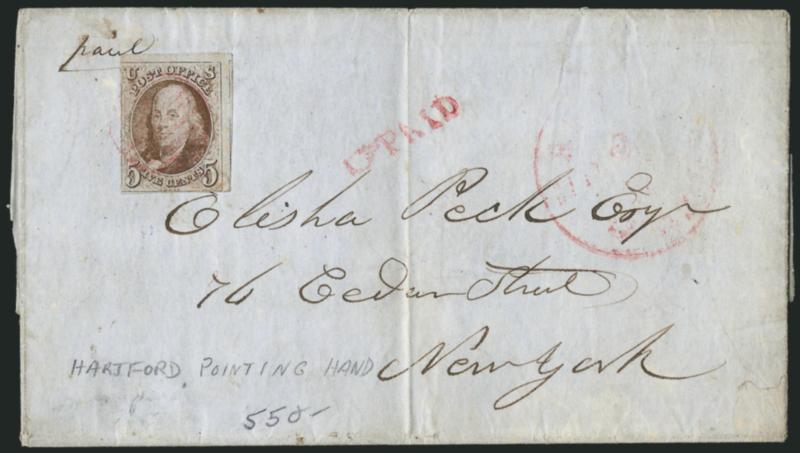 paid
U S
POST OFFICE
5 FIVE CENTS 5
PAID
Elisha Peck Esqr
76 Cedar Street
New York
HARTFORD POINTING HAND
550-